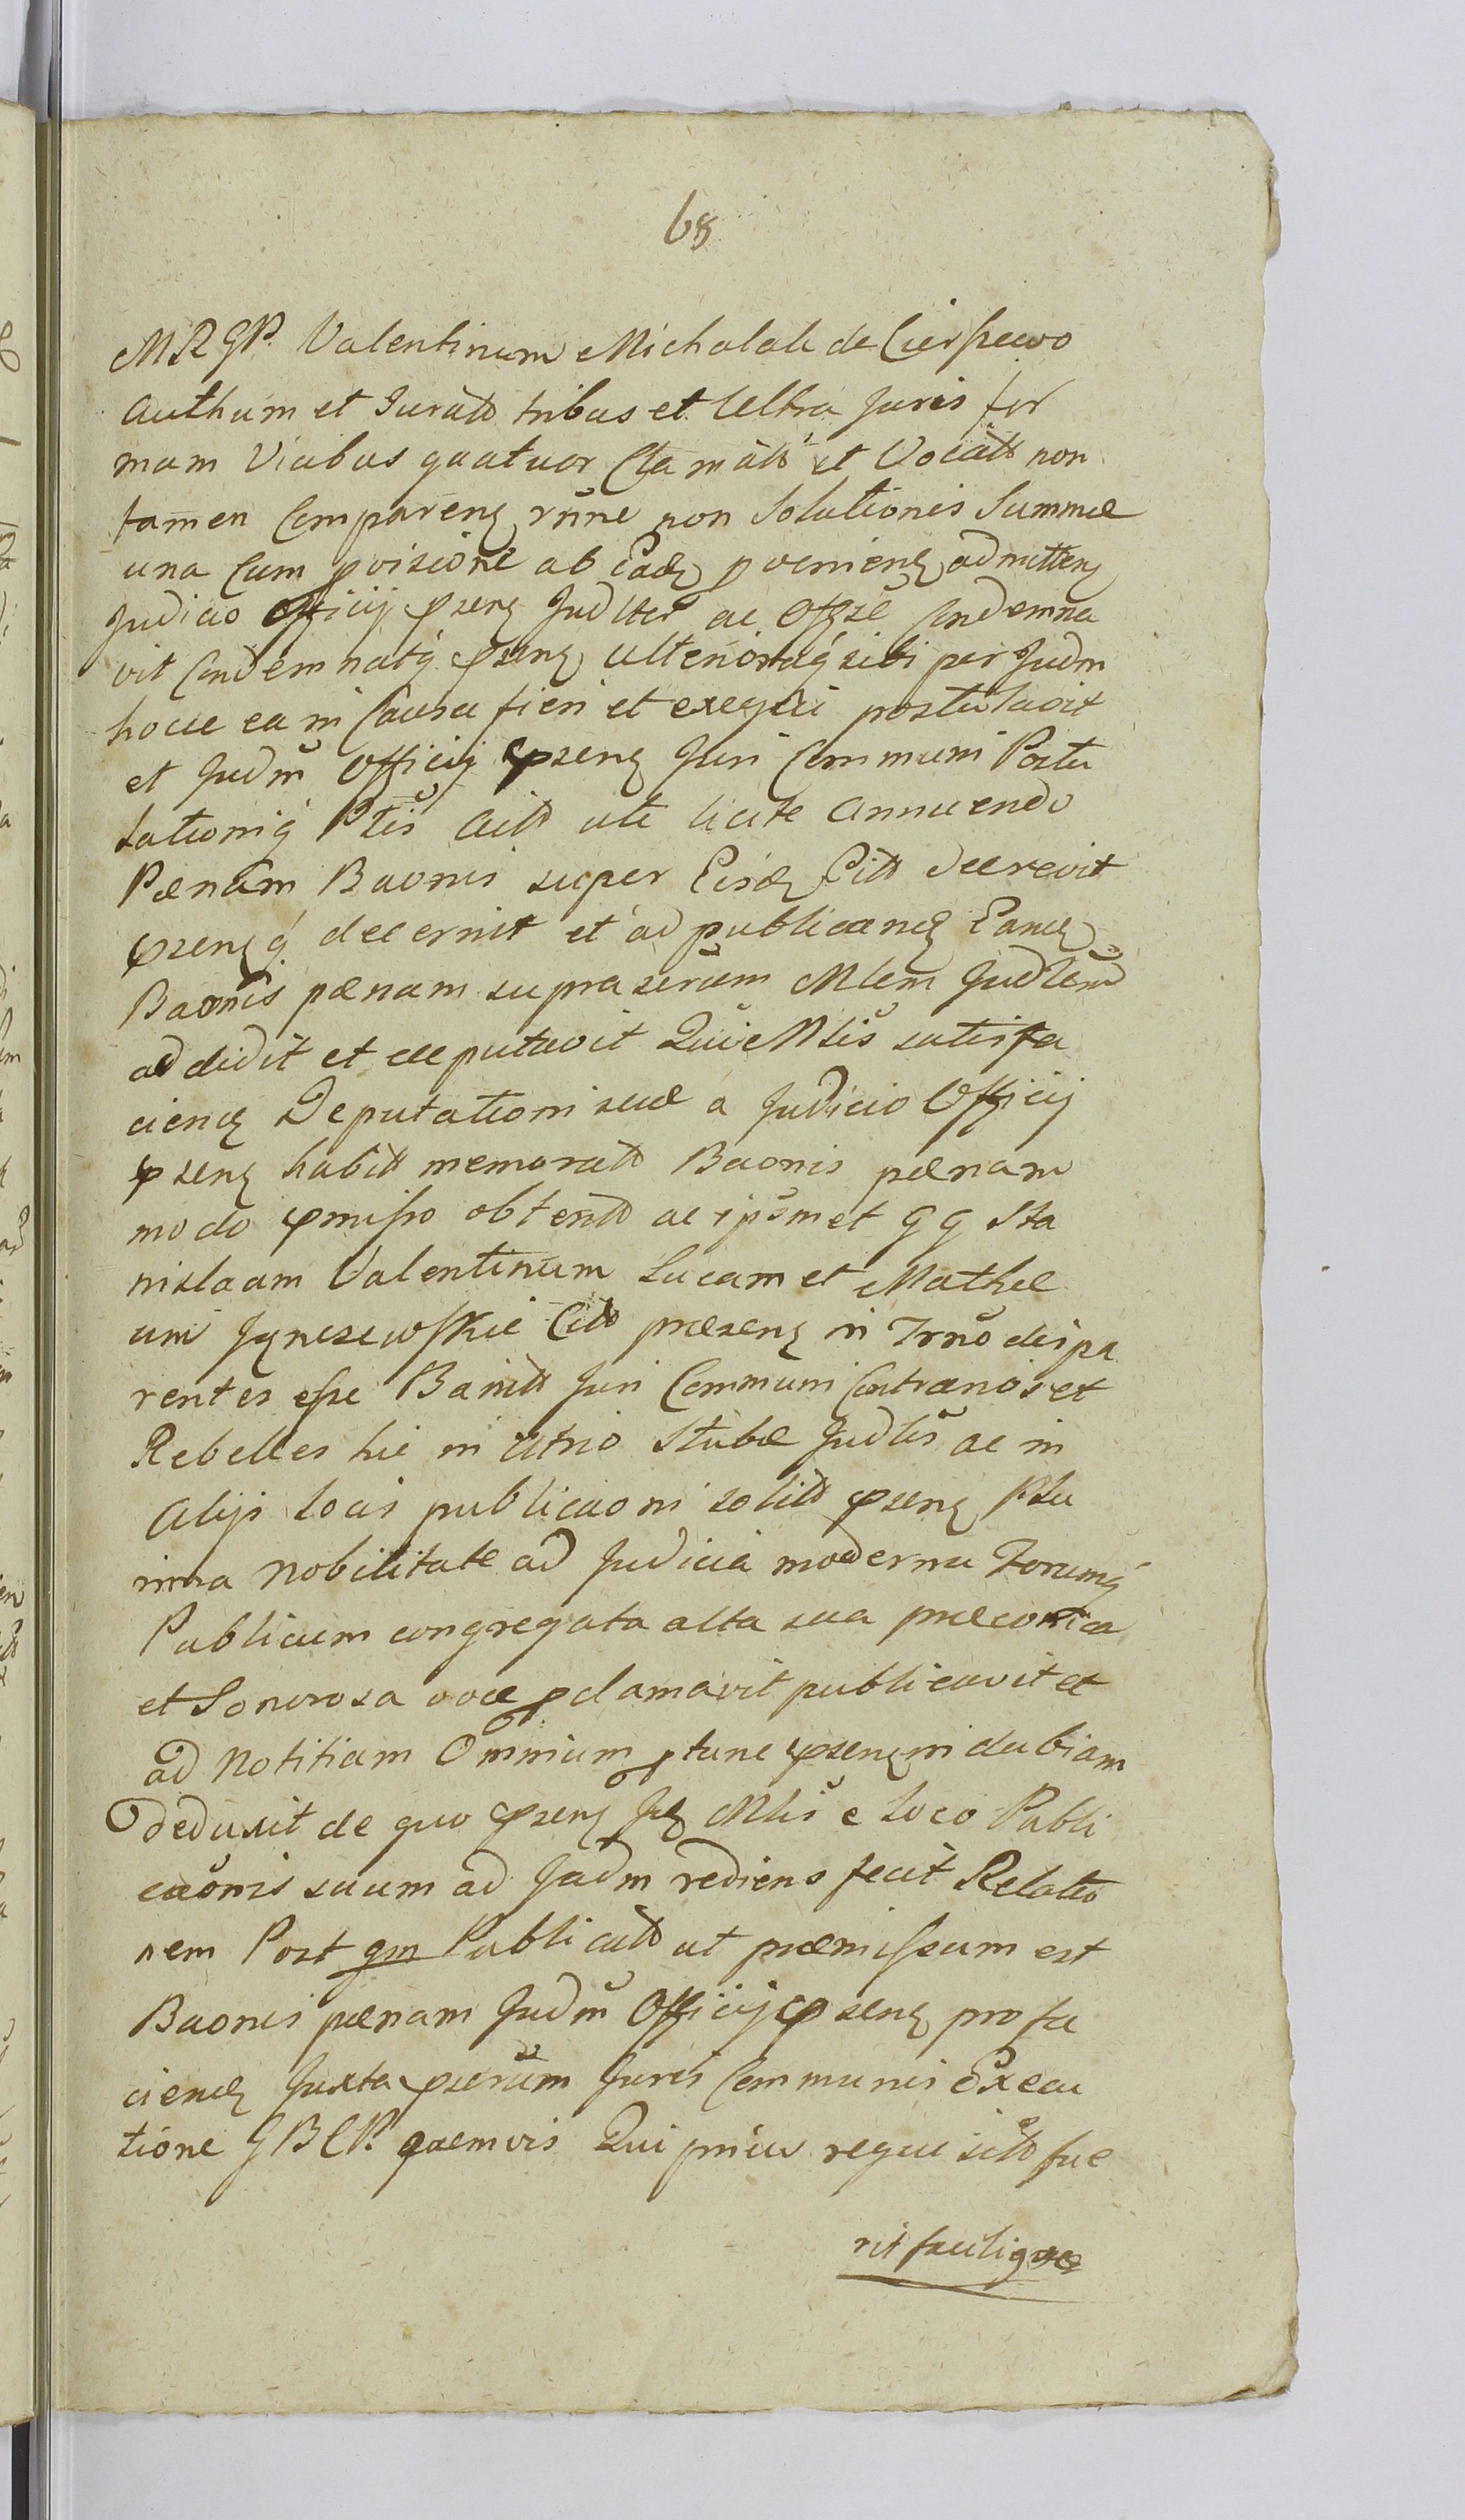 68
MRGP. Valentinum Michalak de Cierpewo
Authum et Juratt tribus et Ultra Juris for
mam Viabus quatuor Clamatt et Vocatt non
tamen Comparenq rñne non Solutionis Summæ
una Cum pvisione ab Eadq pvenienq admitteng
Judicio Officij pseng Judlter ac Offse Condemna
vit Condemnatq pseng Ulterioraq sibi per Judm
hocce ea in Causa fieri et exequi postulavit
et Judm Officij pseng Juri Communi Postu
lationiq Ptis Actt uti licite annuendo
Pænam Baonis super Eisdq Citt decrevit
psengq decernit et ad publicandq Eandq
Baonis pænam suprascrum Mlem Judlem
addidit et deputavit Qui Mlis satisfa
ciendq Deputationi suæ a Judicio Officij
pseng habitt memoratt Baonis pænam
modo pmisso obtentt ac ipsmet GG Sta
nislaum Valentinum Lucam et Mathæ
um Jynczewskie Citt præseng in Trno dispa
rentes esse Banitt Juri Communi Contrarios et
Rebelles hic in atrio Stubæ Judlis ac in
Alijs locis publicaoni solitt pseng Plu
rima Nobilitate ad Judicia moderna Forumq
Publicum congregata alta sua præconica
et Sonorosa voce pclamavit publicavit et
ad Notitiam Omnium ptunc pseng indubiam
deduxit de quo pseng Jdq Mlis e Loco Publi
caonis suum ad Judm rediens fecit Relatio
nem Post qm Publicatt ut præmissum est
Baonis pænam Judm Officij pseng pro fa
ciendq Juxta pscrum Juris Communis Execu
tione GBCP. quemvis Qui prius requisitt fue
rit